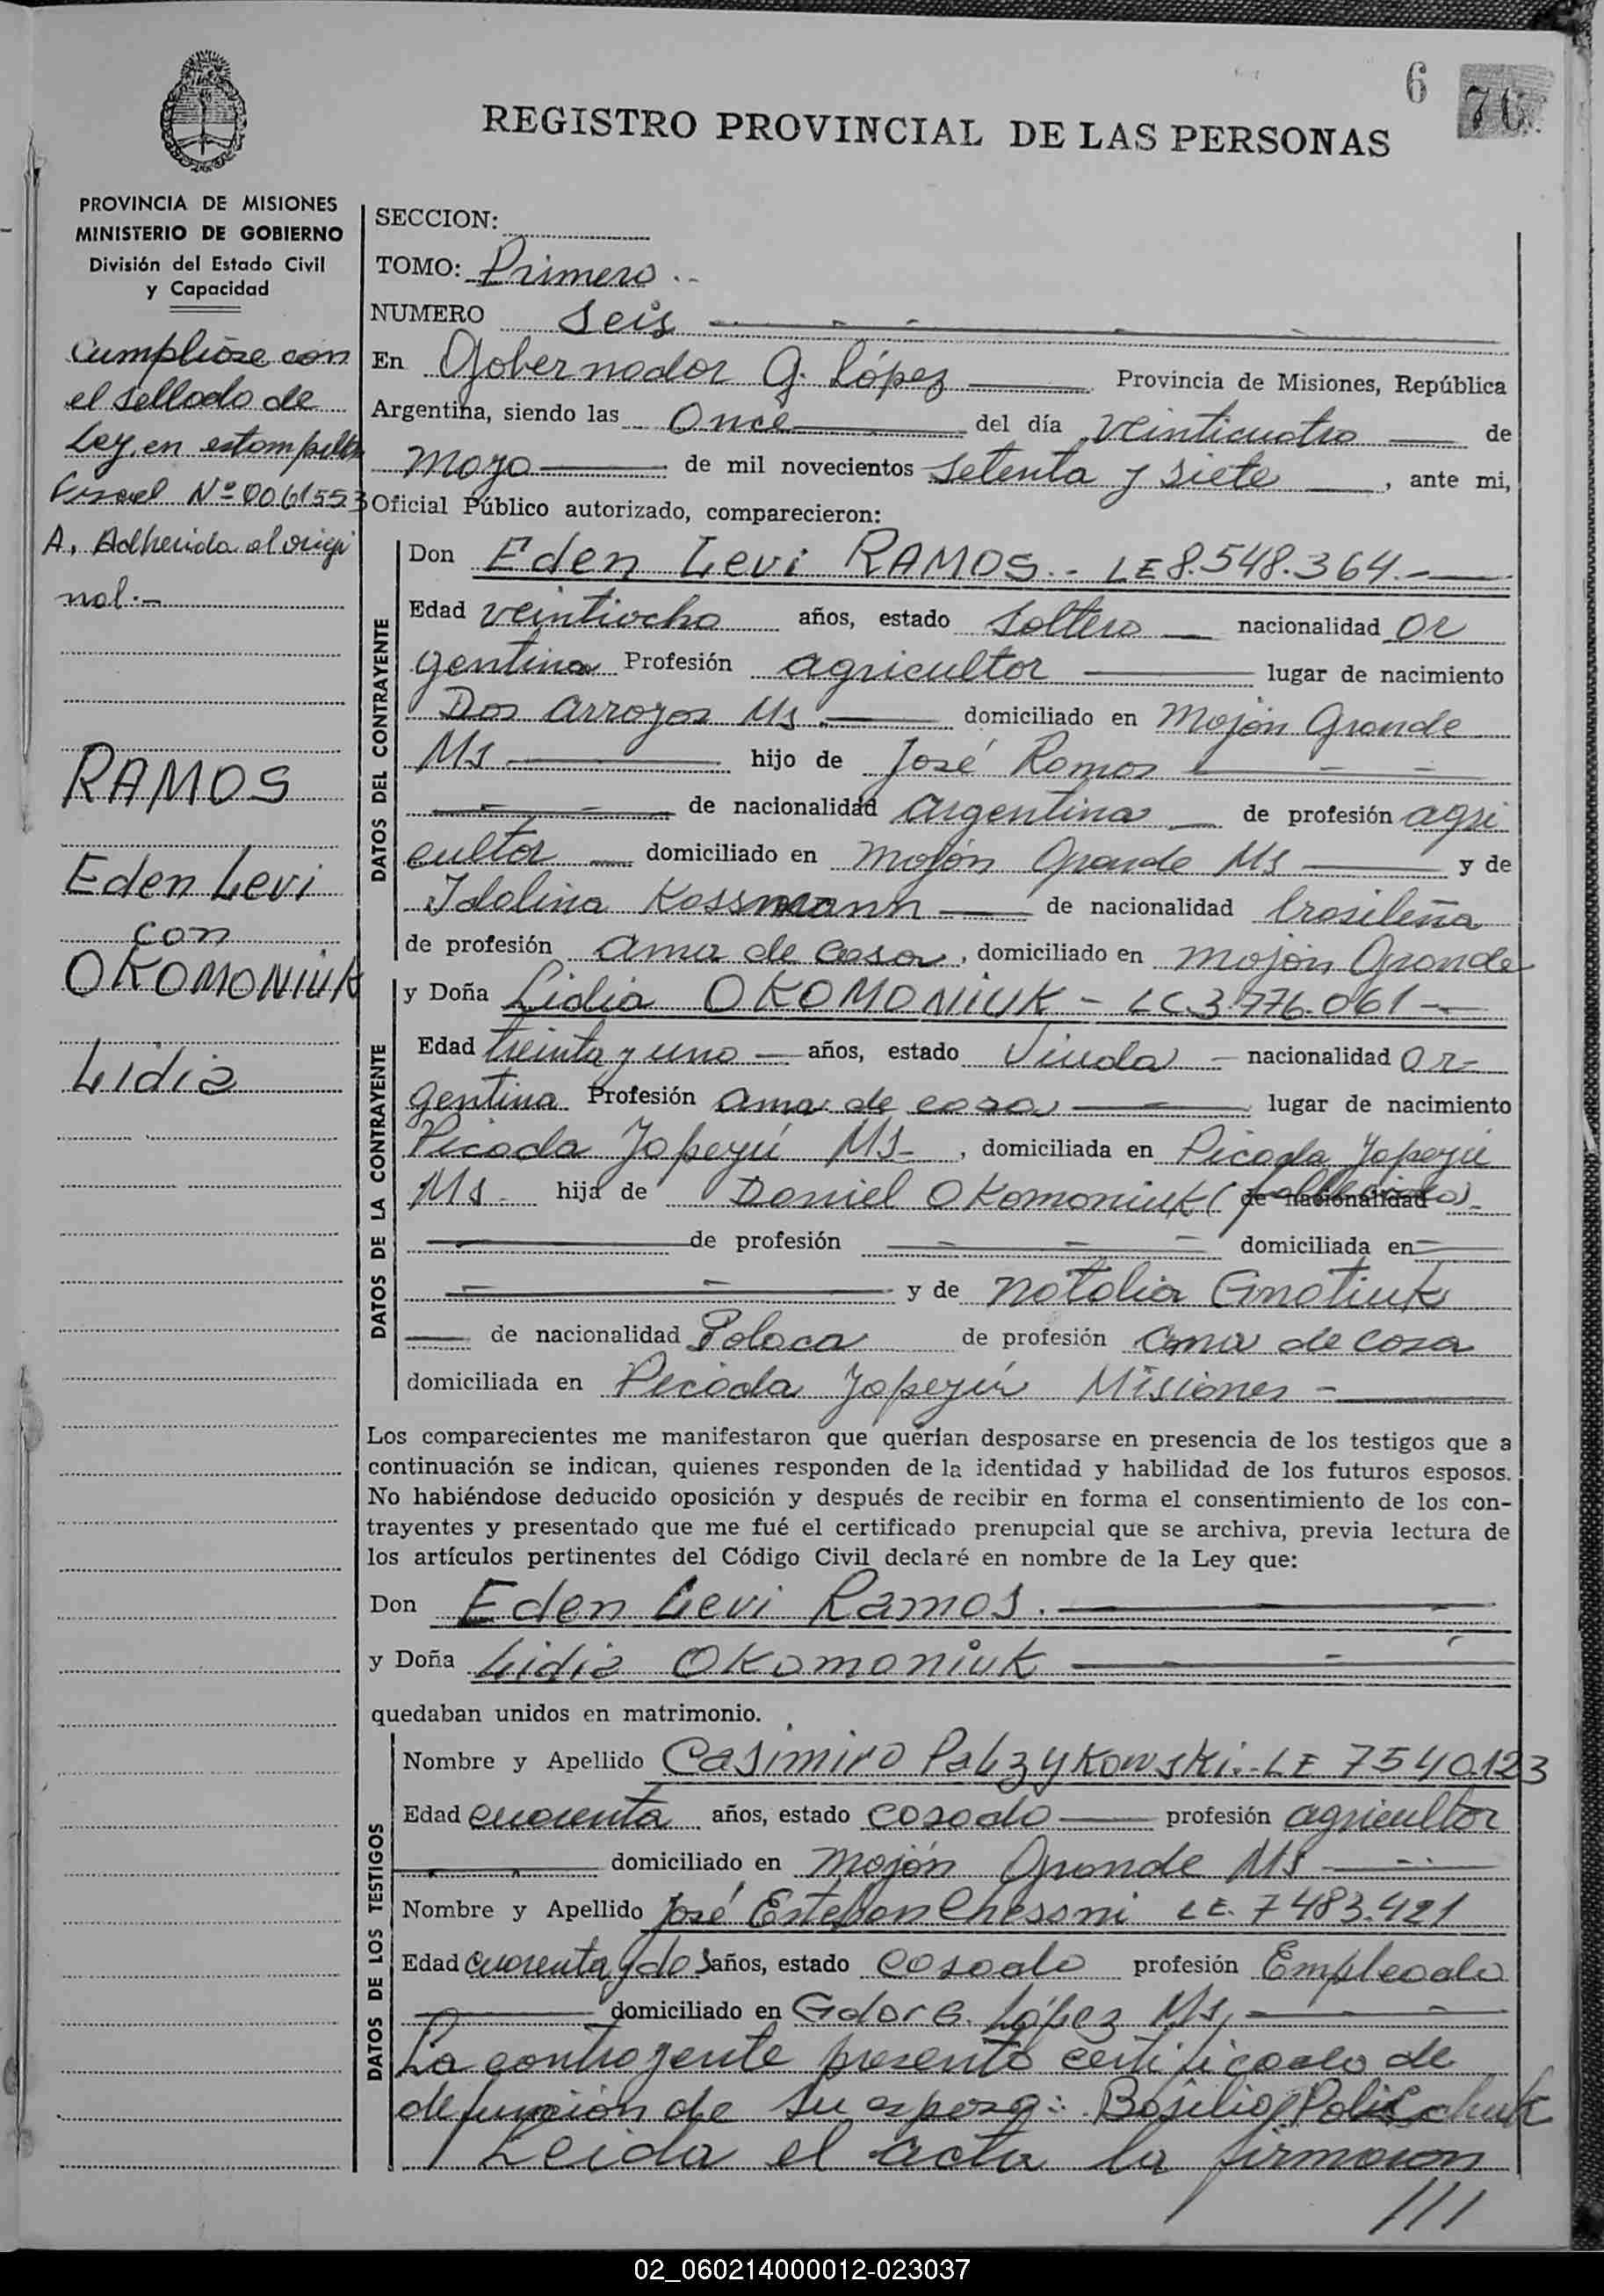 6 76
REGISTRO PROVINCIAL DE LAS PERSONAS
PROVINCIA DE MISIONES
MINISTERIO DE GOBIERNO
División del Estado Civil
y Capacidad
Cumplióse con
el sellado de
Ley, en estampilla
Fiscal Nº 0061553
A, Adherida al origi
nal.-
RAMOS
Eden Levi
con
OKOMONIUK
Lidia
SECCION:
TOMO: Primero..
NUMERO Seis
En Gobernador G. López Provincia de Misiones, República
Argentina, siendo las Once del día veinticuatro de
mayo de mil novecientos setenta y siete, ante mi,
Oficial Público autorizado, comparecieron:
DATOS DEL CONTRAYENTE
Don Eden Levi RAMOS.- LE 8.548.364.-
Edad veintiocho años, estado soltero nacionalidad ar
gentina Profesión agricultor lugar de nacimiento
Dos Arroyos Ms. domiciliado en Mojón Grande
Ms hijo de José Ramos
de nacionalidad argentina de profesión agri
cultor domiciliado en Mojón Grande Ms y de
Idalina Kossmann de nacionalidad brasileña
de profesión ama de casa, domiciliado en Mojón Grande
DATOS DE LA CONTRAYENTE
y Doña Lidia OKOMONIUK - LC.3.776.061-
Edad treinta y uno años, estado Viuda nacionalidad ar-
gentina Profesión ama de casa lugar de nacimiento
Picada Yapeyú Ms-, domiciliada en Picada Yapeyú
Ms- hija de Daniel Okomoniuk (fallecido)- de nacionalidad
de profesión domiciliada en
y de Natalia Gnatiuk
de nacionalidad Polaca de profesión ama de casa
domiciliada en Picada Yapeyú Misiones -
Los comparecientes me manifestaron que querían desposarse en presencia de los testigos que a
continuación se indican, quienes responden de la identidad y habilidad de los futuros esposos.
No habiéndose deducido oposición y después de recibir en forma el consentimiento de los con-
trayentes y presentado que me fué el certificado prenupcial que se archiva, previa lectura de
los artículos pertinentes del Código Civil declaré en nombre de la Ley que:
Don Eden Levi Ramos.
y Doña Lidia Okomoniuk
quedaban unidos en matrimonio.
DATOS DE LOS TESTIGOS
Nombre y Apellido Casimiro LE 7540123
Edad cuarenta años, estado casado profesión agricultor
domiciliado en Mojón Grande Ms
Nombre y Apellido José Esteban Chesani LE. 7483.421
Edad cuarenta y dos años, estado casado profesión Empleado
domiciliado en Gdor G. López Ms,
La contrayente presentó certificado de
defunción de su esposo: Basilio Polischuk
Leida el acta la firmaron
///
02_060214000012-023037